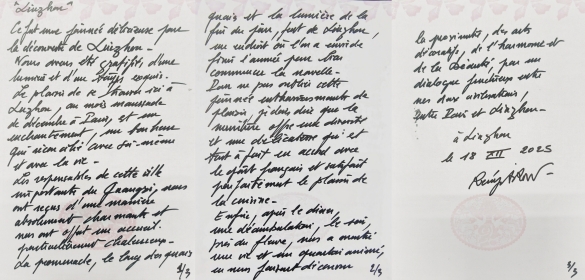 "Liuzhou"
Ce fut une journée délicieuse pour
la découverte de Liuzhou -
Nous avons été gratifiés, d'une
lumière et d'un temps exquis.
Le plaisir de se trouver ici à
Liuzhou, au mois maussade
de décembre à Paris, est un
enchantement, un bonheur
avec soi-même
et avec la vie -
Les responsables de cette ville
importante du Guangxi, nous
ont reçus d'une manière
absolument charmante et
nous ont offert un accueil
particulièrement chaleureux -
La promenade, le long des quais
1/3
quais et la lumière de la
fin du jour, font de Liuzhou,
un endroit où l'on a envie de
finir l'année pour bien
commencer la nouvelle -
Pour ne pas oublier cette
journée enthousiasmante de
plaisir, je dirais que la
nourriture offre une diversité
et une délicatesse qui est
tout à fait en accord avec
le goût français et satisfait
parfaitement le plaisir de
la cuisine -
Enfin, après le dîner,
une déambulation, le soir,
près du fleuve, nous a montré
une vie et un quartier animé,
en nous faisant découvrir
2/3
la proximité, des arts
de l'harmonie et
de la beauté, par un
dialogue fructueux entre
nos deux civilisations,
entre Paris et Liuzhou -
à Liuzhou
le 18 XII 2025
3/3